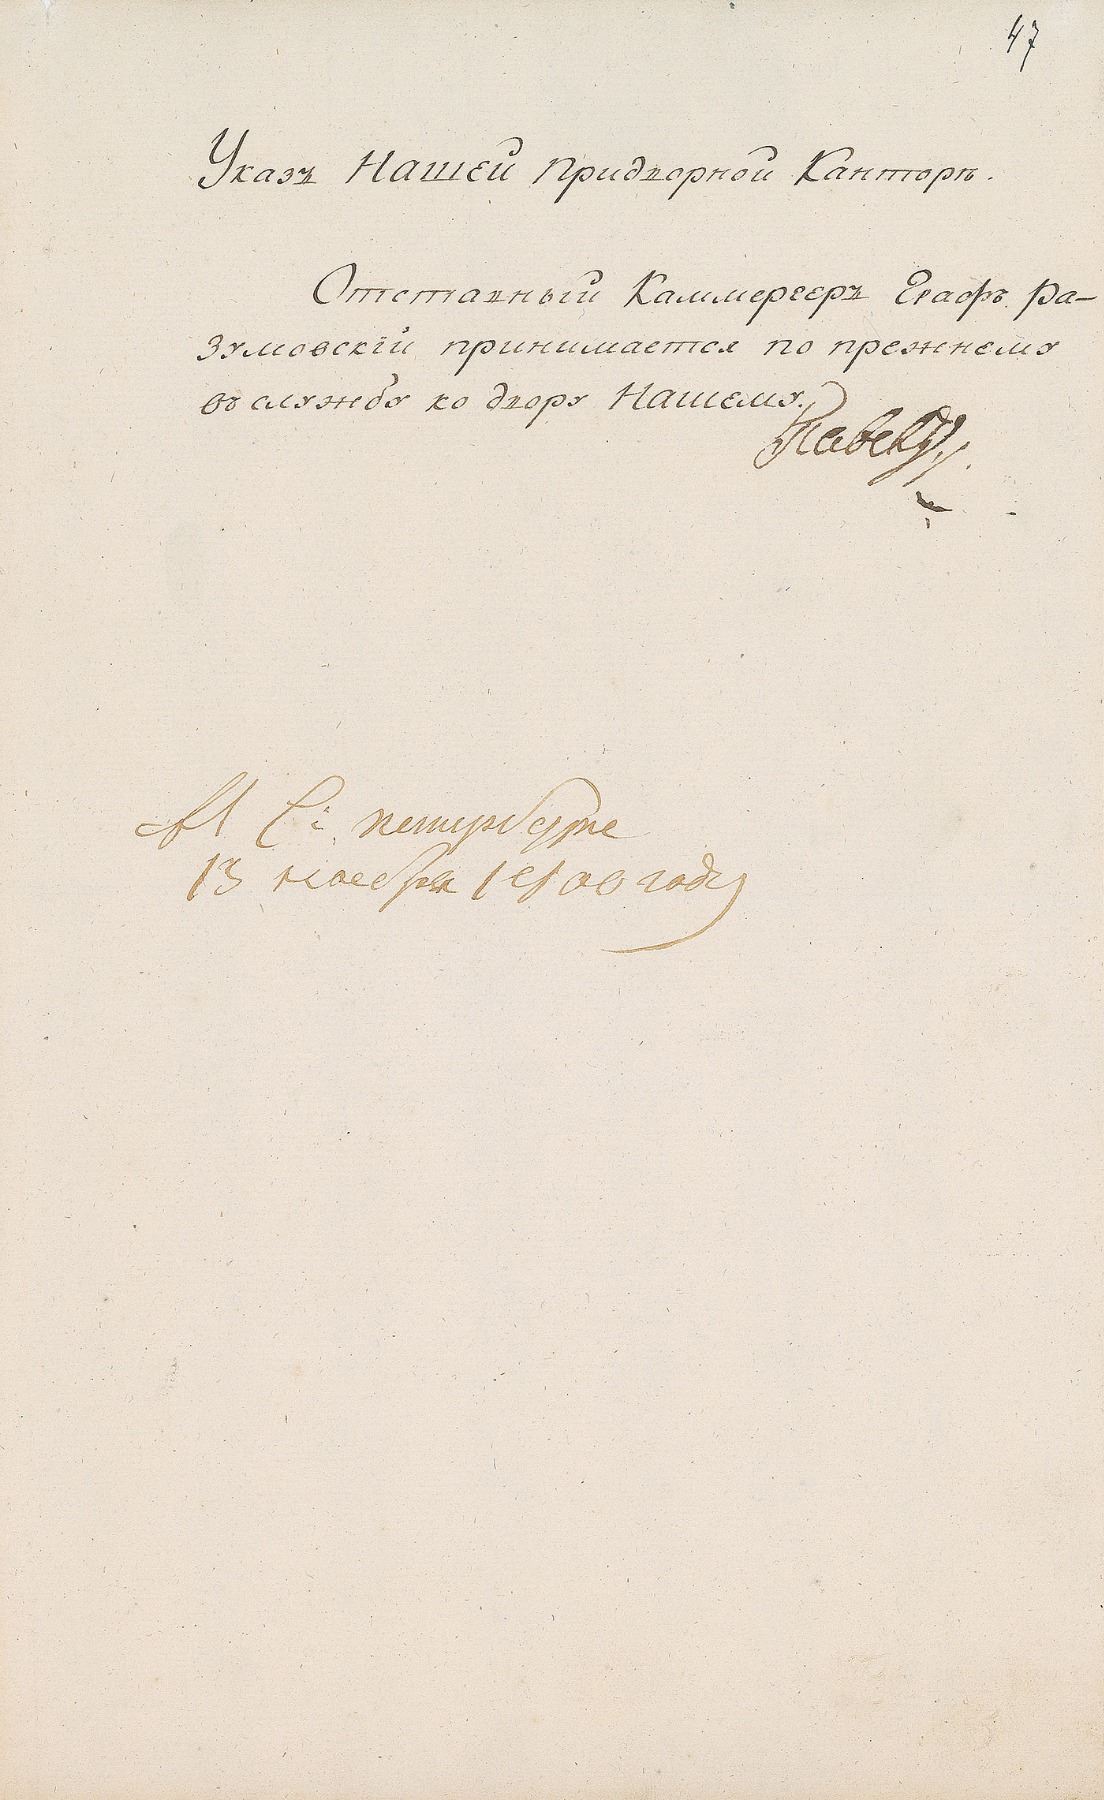 47
Указъ Нашей Придворной Канторѣ.
Отставный Каммергеръ Графъ Ра-
зумовскій принимается по прежнему
въ службу ко двору Нашему.
Павелъ
въ Сᵗ: петербурге
13 ноября 1800 году